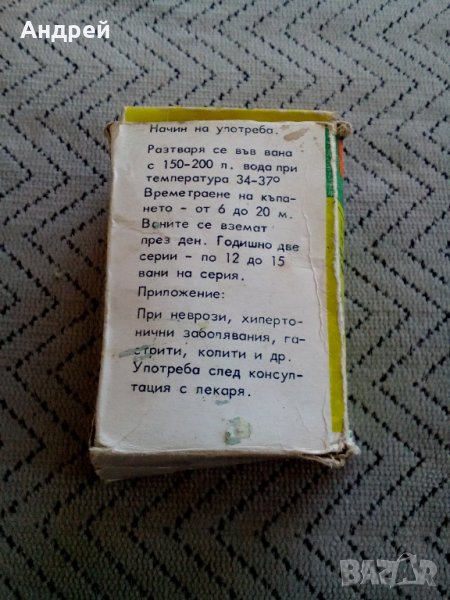 Андрей
Начин на употреба.
Разтваря се във вана
с 150-200 л. вода при
температура 34-37°
Времетраене на къпа-
нето - от 6 до 20 м.
Ваните се вземат
през ден. Годишно две
серии - по 12 до 15
вани на серия.
Приложение:
При неврози, хиперто-
нични заболявания, га-
стрити, колити и др.
Употреба след консул-
тация с лекаря.
BAZAR